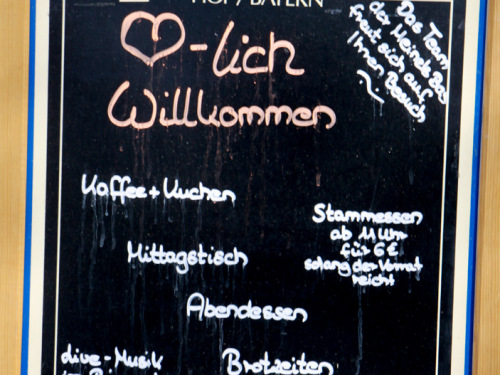 HOF/BAYERN
♡-lich
Willkommen
Das Team
der Meinels Bas
freut sich auf
Ihren Besuch
Kaffee + Kuchen
Stammessen
ab 11 Uhr
für 6 €
solang der Vorrat
reicht
Mittagstisch
Abendessen
Live-Musik
Brotzeiten